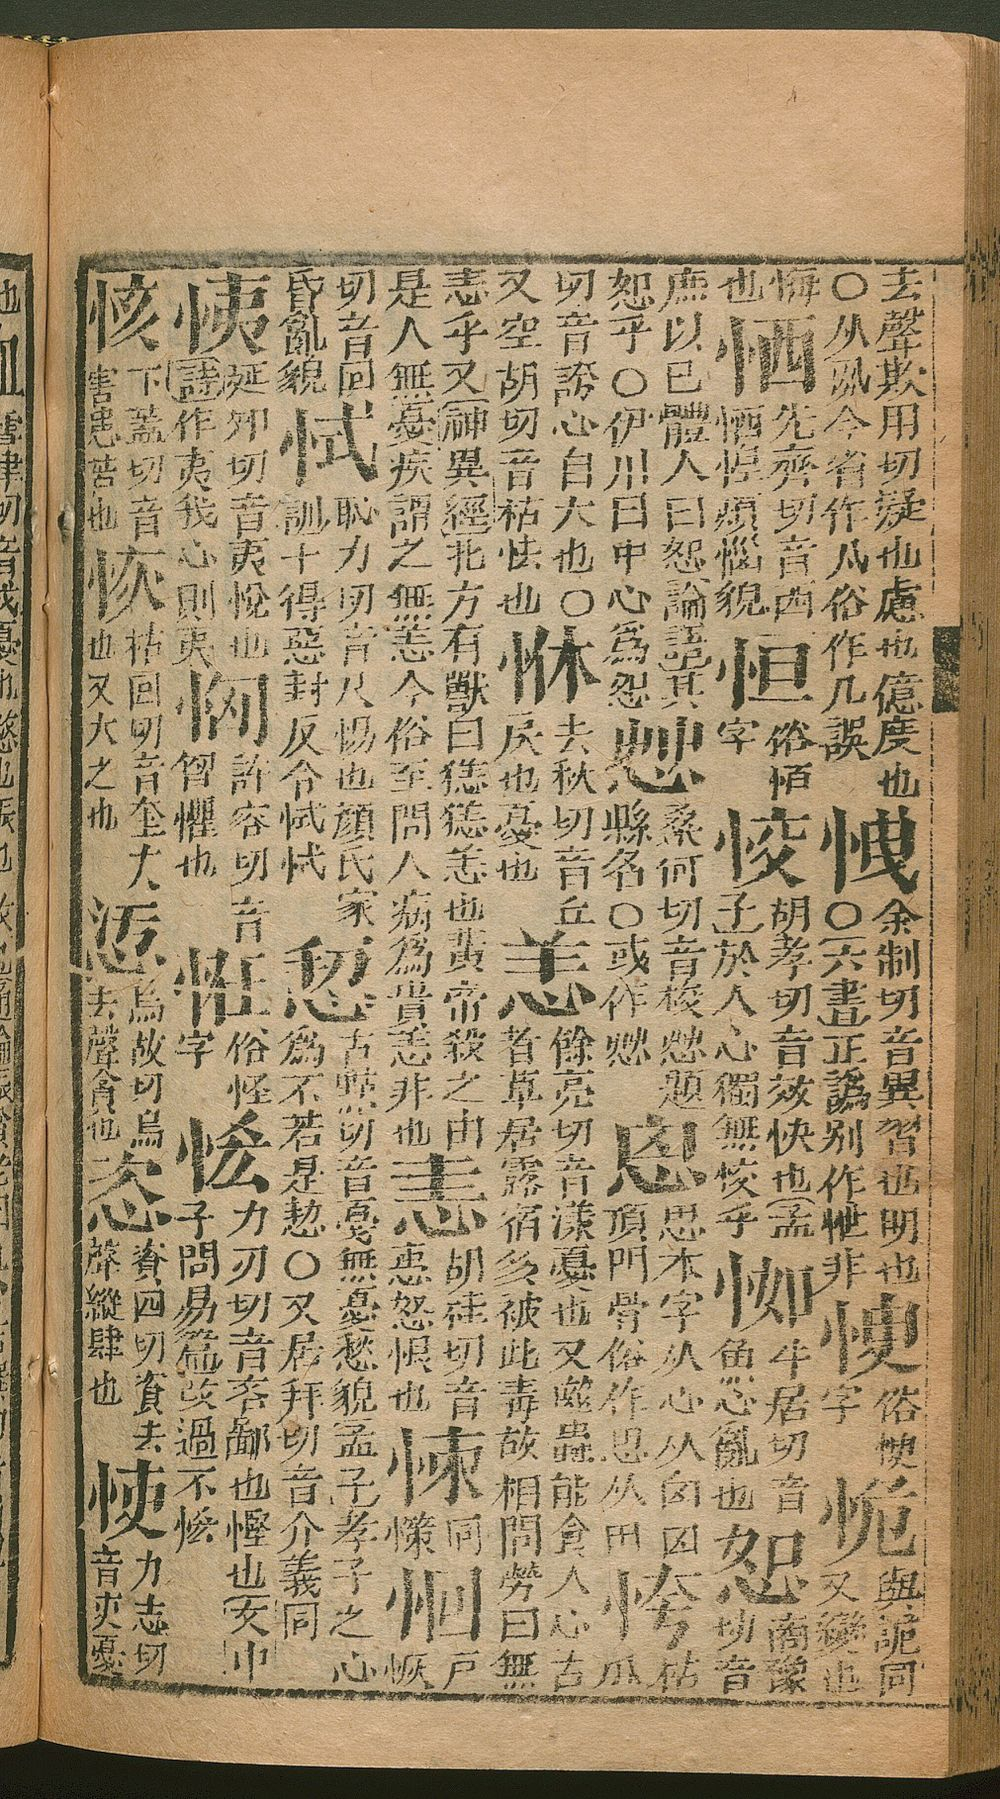 去聲欺用切疑也慮也億度也
○从夙今省作凡俗作几誤
㥷
余制切音異習也明也
○六書正譌別作怈非
㤦
俗㥪
字
恑
與詭同
又變也
悔
也
恓
先齊切音西
恓惶煩惱貌
恒
俗恆
字
恔
胡孝切音效快也孟
子於人心獨無恔乎
㤚
牛居切音
魚心亂也
恕
商豫
切音
庶以己體人曰恕論語其
恕乎○伊川曰中心爲恕
桑何切音梭縣題
縣名○或作
思
思本字从心从囟囟
頂門骨俗作思从田
恗
枯
瓜
切音誇心自大也○
又空胡切音枯怯也
恘
去秋切音丘
戾也憂也
恙
餘亮切音漾憂也又噬蟲能食人心古
者草居露宿多被此毒故相問勞曰無
恙乎又神異經北方有獸曰㺊㺊恙也黃帝殺之由
是人無憂疾謂之無恙今俗至問人病爲貴恙非也
恚
胡桂切音
恚怒恨也
㤡
同
憡
恛
戸
恢
切音回
昏亂貌
恜
恥力切音尺惕也顏氏家
訓十得惡封反令恜恜
恝
古黠切音戛無憂愁貌孟子孝子之心
爲不若是恝○又居拜切音介義同
恞
延知切音夷悅也
詩作夷我心則夷
恟
許容切音
匈懼也
恠
俗怪
字
㤺
力刃切音吝鄙也慳也文中
子問易篇改過不㤺
㤥
下蓋切音
害患苦也
恢
枯回切音奎大
也又大之也
㤧
烏故切烏
去聲貪也
恣
資四切資去
聲縱肆也
㤦
力志切
音吏憂